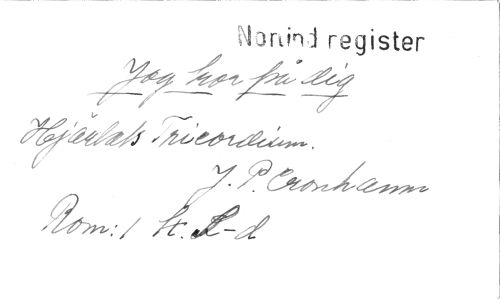 Nonind register
Jag tror på dig
Hjärtats Tricordium.
J. P. Cronhamn
Rom: 1 st. R-d